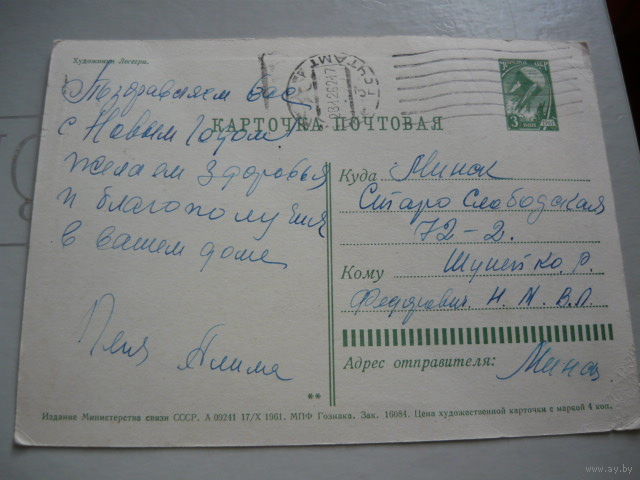 Художник Лесегри.
ПОЧТА СССР
3 коп
Поздравляем вас
с Новым годом!
желаем здоровья
и благополучия
в вашем доме
КАРТОЧКА ПОЧТОВАЯ
Куда Минск
Старо Слободская
72-2.
Кому Шупейко. Р.
Федорович. Н. М. В. Л.
Адрес отправителя: Минск
**
Издание Министерства связи СССР. А 09241 17/X 1961. МПФ Гознака. Зак. 16084. Цена художественной карточки с маркой 4 коп.
www.ay.by